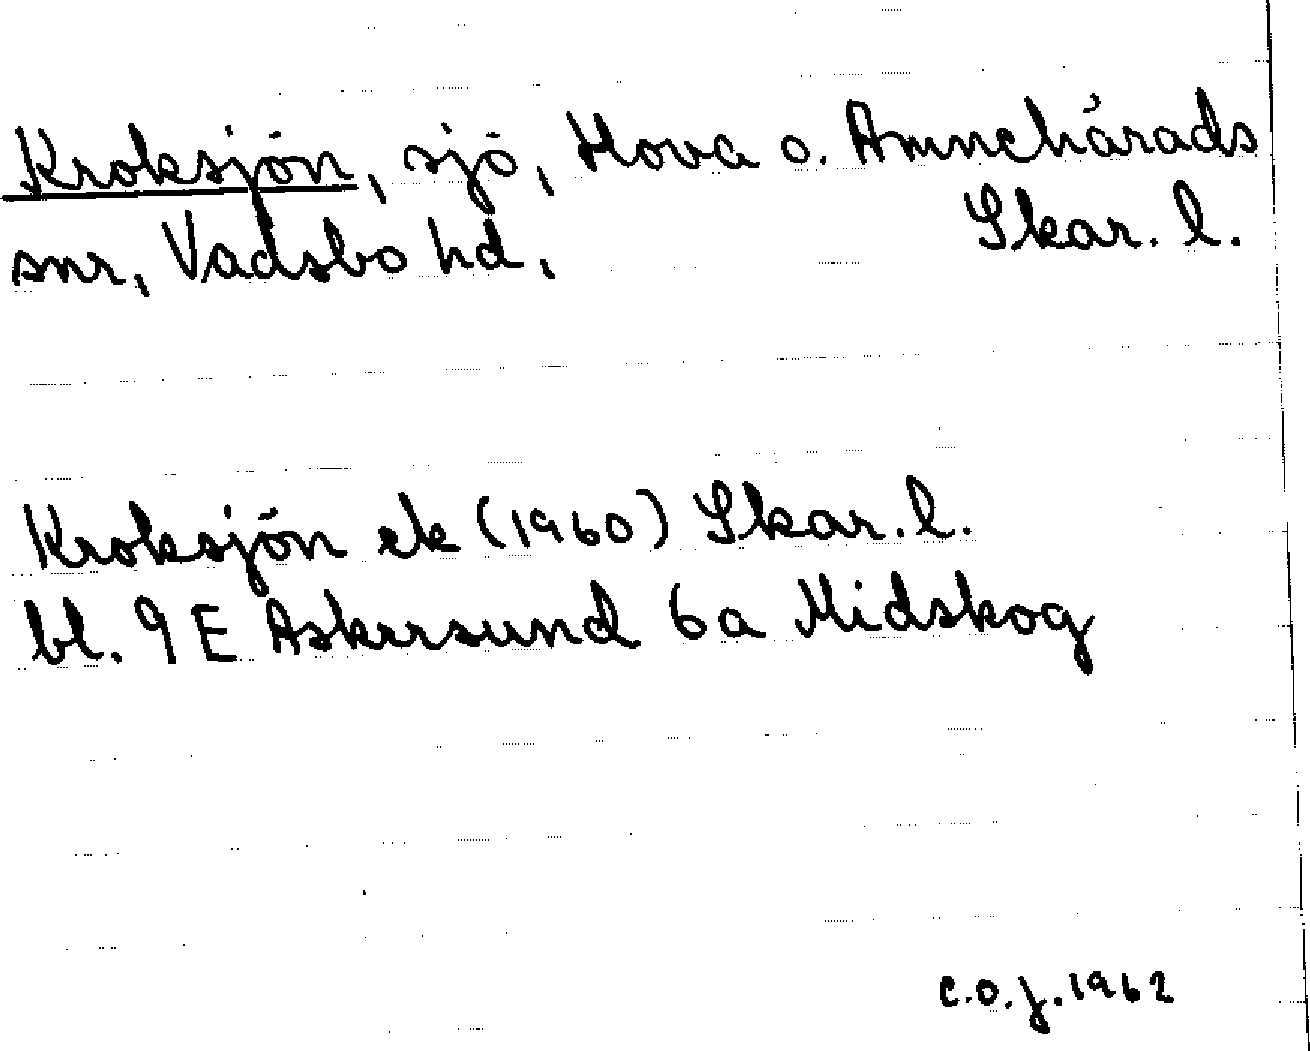 Kroksjön, sjö, Hova o. Amnehårads
snr, Vadsbo hd, Skar. l.
Kroksjön ek (1960) Skar. l.
bl. 9 E Askersund 6a Midskog
C.O.J. 1962